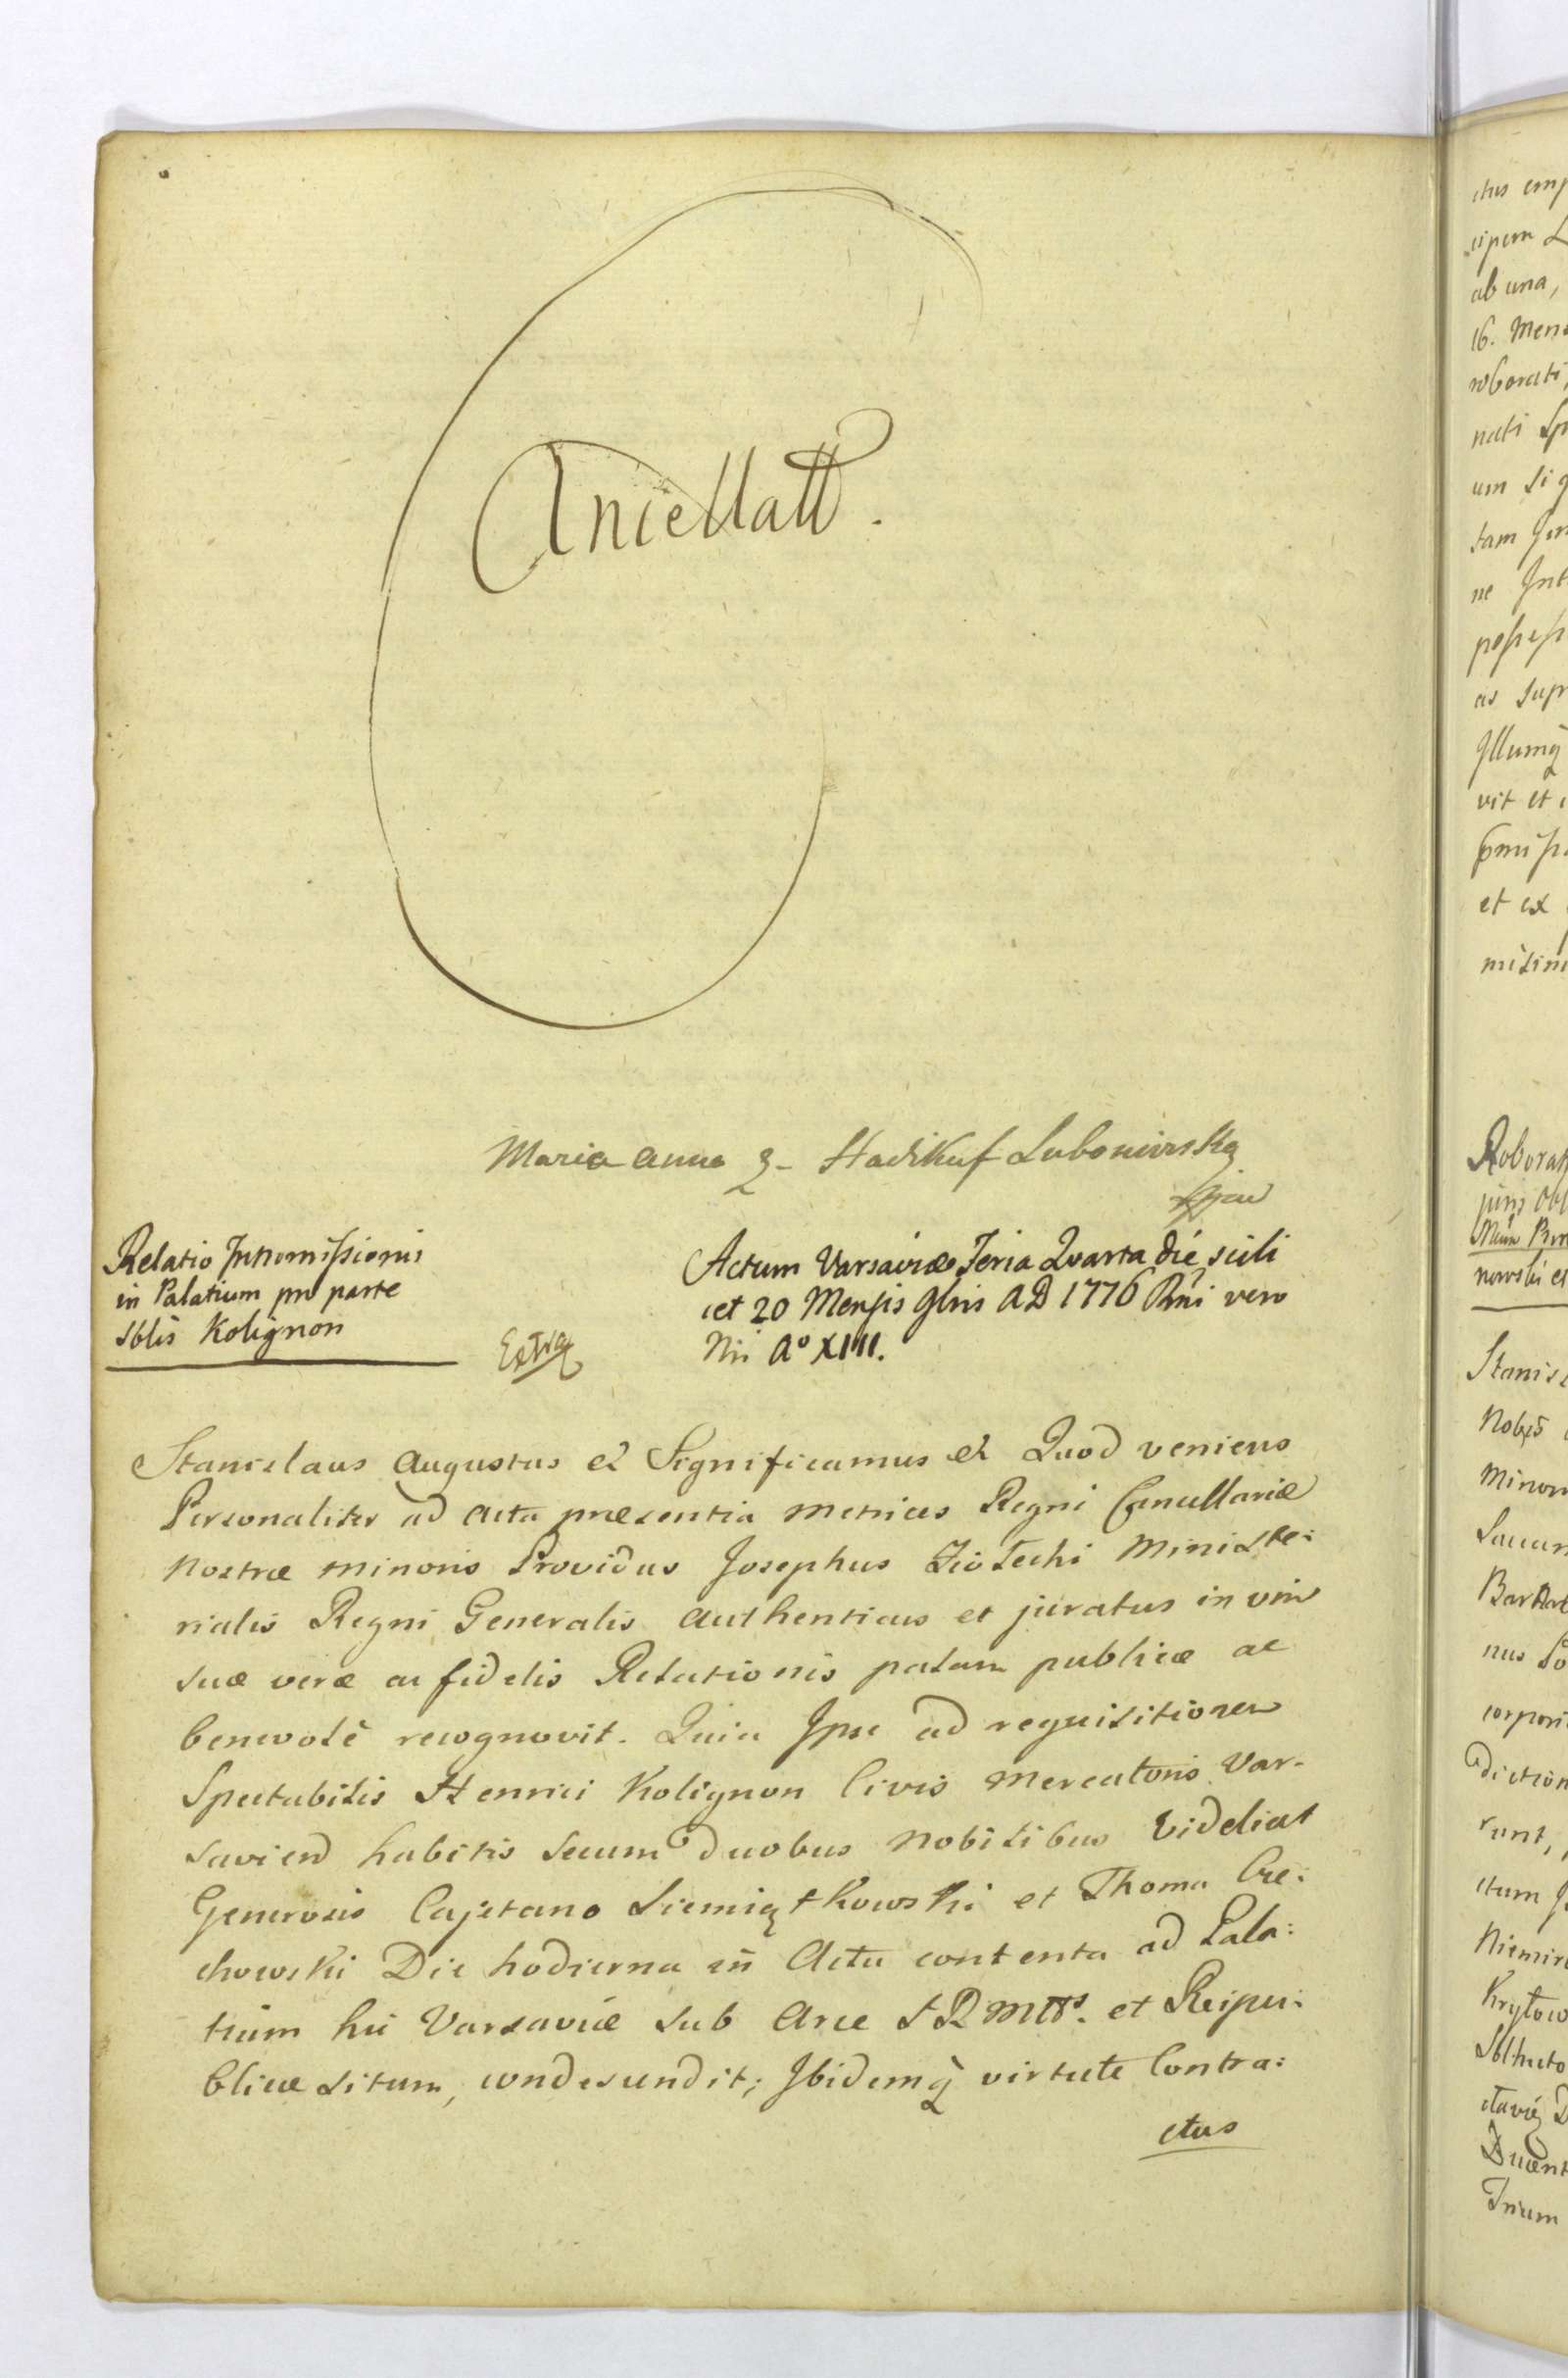 Cancellatt.
Maria anna z Hadikuf Lubomirska
Relatio Intromissionis
in Palatium pro parte
Sblis Kolignon
Extra
Actum Varsaviæ Feria Quarta die scili
cet 20 Mensis 9bris AD 1776 Rni vero
Nri Aº XIII.
Stanislaus Augustus et Significamus et Quod veniens
Personaliter ad acta præsentia metrices Regni Cancellariæ
nostræ minoris Providus Josephus Ministe:
rialis Regni Generalis authenticus et juratus in vim
suæ veræ ac fidelis Relationis palam publicæ ac
benevolè recognovit. Quia Ipse ad requisitionem
Spectabilis Henrici Kolignon Civis mercatoris Var-
savien habitis secum duobus nobilibus videlicet
Generosis Cajetano Siemiątkowski et Thoma Cie:
chowski Die hodierna in Actu contenta ad Pala:
tium hic Varsaviæ sub Arce S R Mttis. et Reipu:
blicæ situm, condescendit; Ibidemq̀ virtute Contra:
ctus
ctus emp
cipem L
ab una,
16. Mens
roborati,
nati Sp
um sig
tam
ne Int
possess
as supr
Illumq̀
vit et
et ex
Roborat
juris Obl
nowski et
Stanisl
Nobis
minor
corpori
diction
runt,
ctum
Niemir
Kryłow
Trium